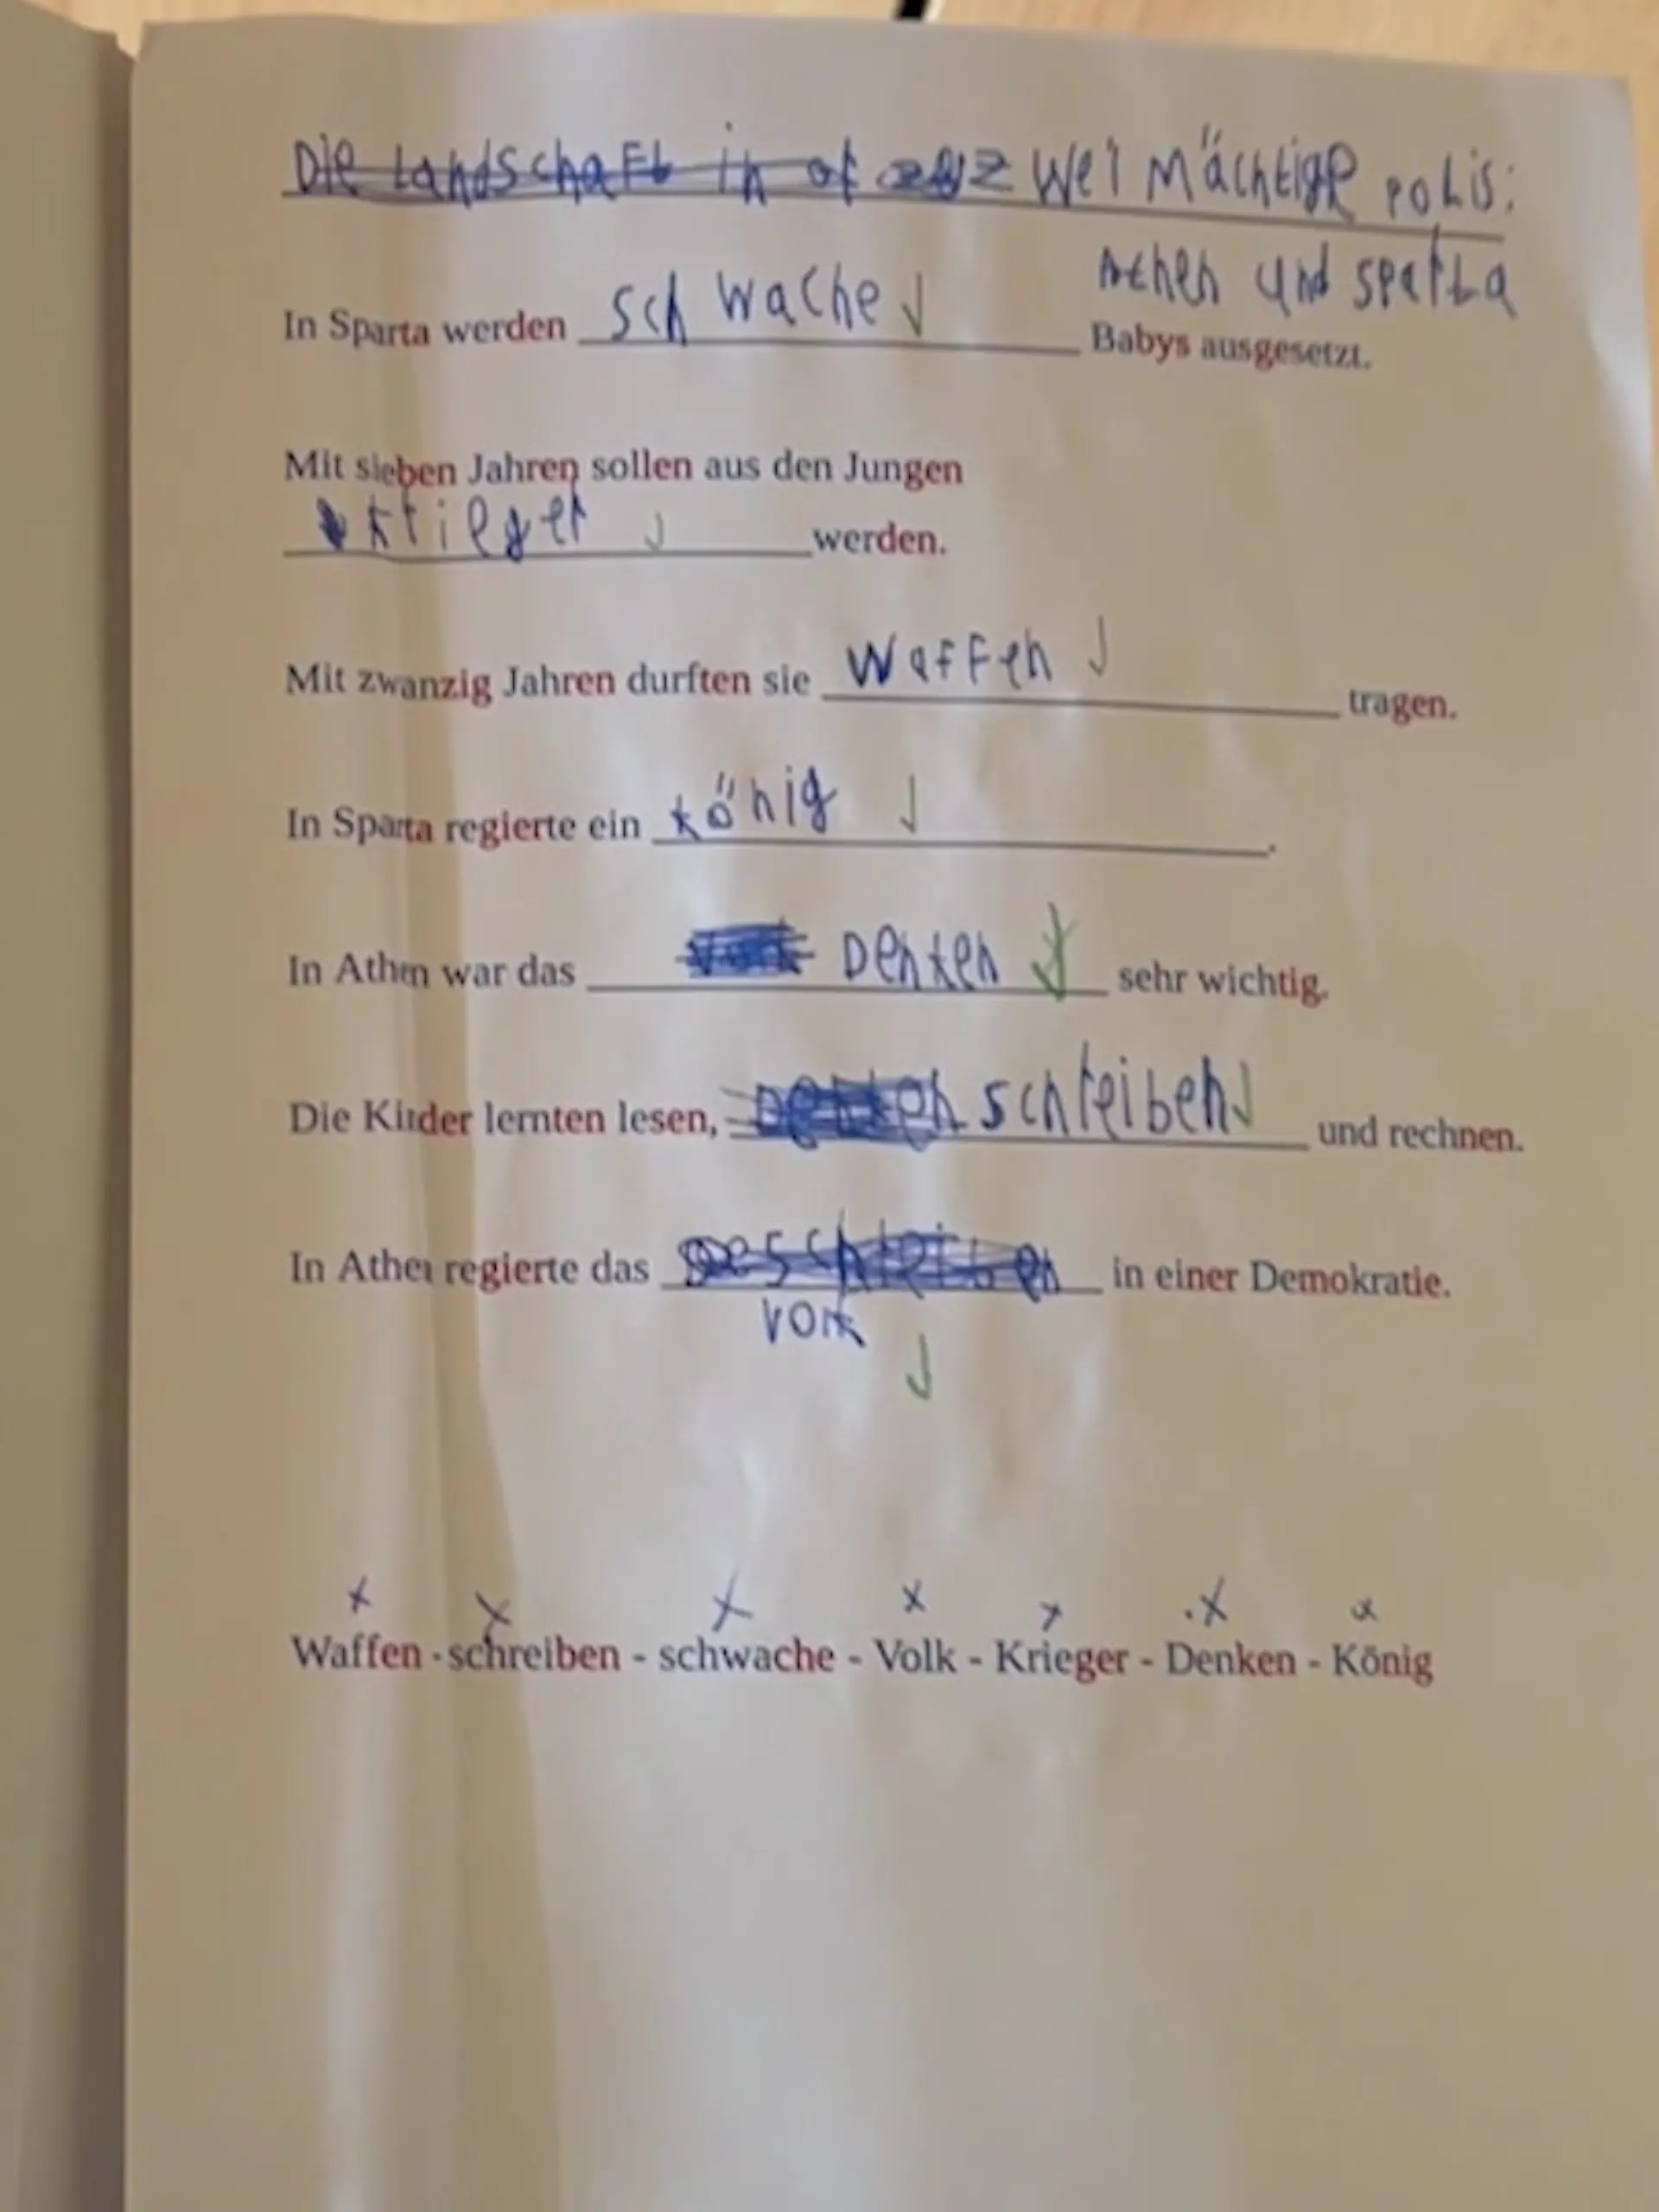 Die Landschaft in zwei Mächtige polis:
Athen und sparta
In Sparta werden schwache Babys ausgesetzt.
Mit sieben Jahren sollen aus den Jungen
krieger werden.
Mit zwanzig Jahren durften sie Waffen tragen.
In Sparta regierte ein könig.
In Athen war das Denken sehr wichtig.
Die Kinder lernten lesen, schreiben und rechnen.
In Athen regierte das in einer Demokratie.
Volk
Waffen - schreiben - schwache - Volk - Krieger - Denken - König